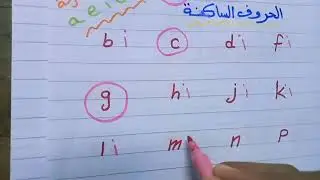 a e i
الحروف الساكنة
bi c di fi
g hi ji ki
li m n p